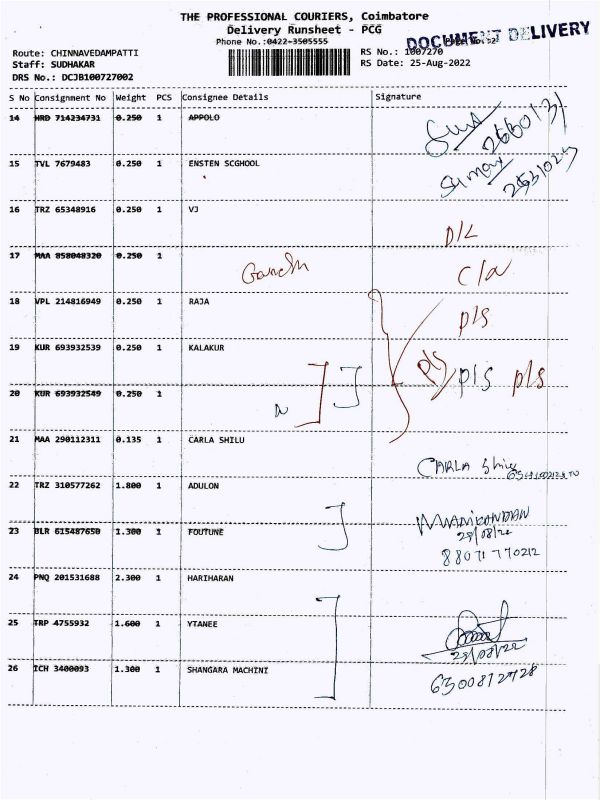 THE PROFESSIONAL COURIERS, Coimbatore
Delivery Runsheet - PCG
Phone No.:0422-3505555
DOCUMENT DELIVERY
Route: CHINNAVEDAMPATTI
RS No.: 1007270
Staff: SUDHAKAR
RS Date: 25-Aug-2022
DRS No.: DCJB100727002
S No Consignment No Weight PCS Consignee Details Signature
14 HRD 714234731 0.250 1 APPOLO
15 TVL 7679483 0.250 1 ENSTEN SCGHOOL
16 TRZ 65348916 0.250 1 VJ
D/L
17 MAA 858048320 0.250 1
18 VPL 214816949 0.250 1 RAJA
P/S
19 KUR 693932539 0.250 1 KALAKUR
P/S P/S P/S
20 KUR 693932549 0.250 1
N
21 MAA 290112311 0.135 1 CARLA SHILU
CARLA
22 TRZ 310577262 1.800 1 ADULON
MANIKANDAN
23 BLR 615487650 1.300 1 FOUTUNE
88071 770212
24 PNQ 201531688 2.300 1 HARIHARAN
25 TRP 4755932 1.600 1 YTANEE
26 ICH 3400093 1.300 1 SHANGARA MACHINI